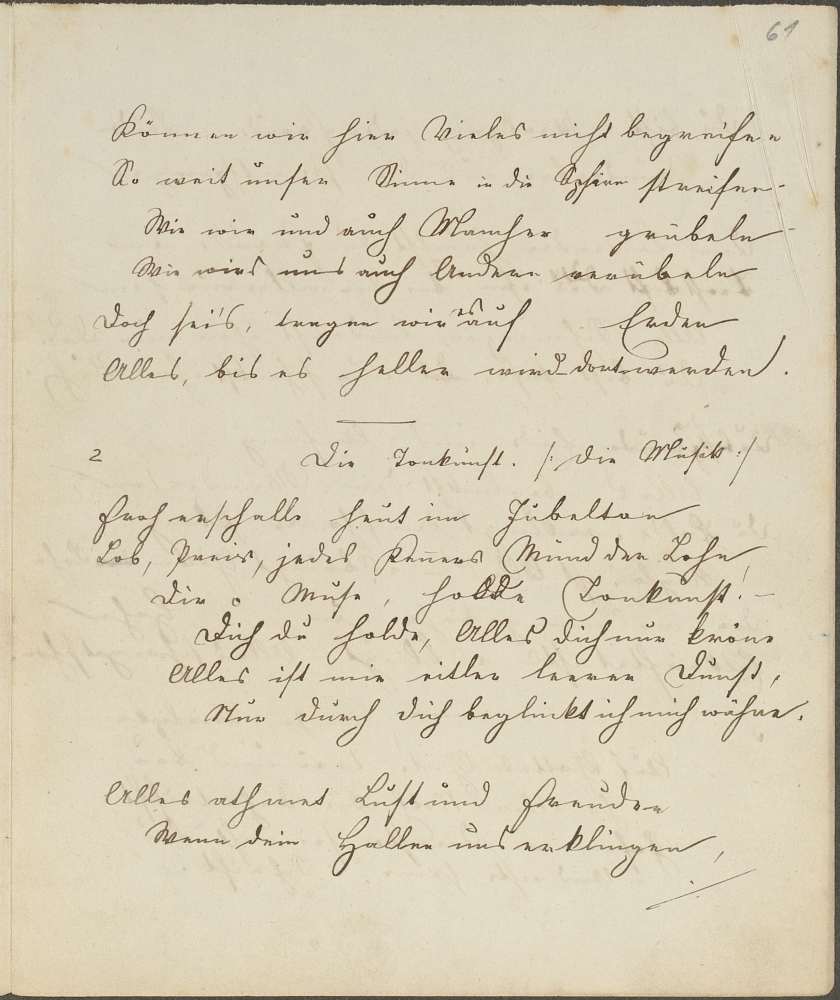 61
Können wir hier Vieles nicht begreifen
So weit unser Sinne in die Sphäre streifen-
Wie wir und auch Mancher grübeln
Wie wirds uns auch Andere verübeln
Doch sei's, tragen wir es auf Erden
Alles, bis es heller wird dort werden.
2 Die Tonkunst. /: Die Musik :/
Froh erschalle heut im Jubelton
Lob, Preis, jedes Keñers Mund der Lohn,
Dir o Muse, holde Tonkunst! –
Dich du holde, Alles dich nur kröne
Alles ist mir eitler leerer Dunst,
Nur durch dich beglückt ich mich wähne.
Alles athmet Lust und Freuden
Wenn dein Hallen uns erklingen,
./.